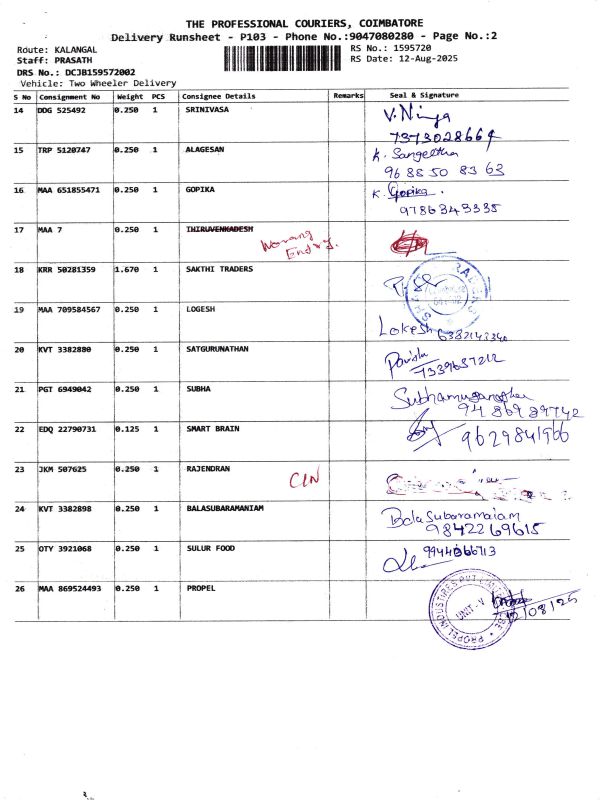 THE PROFESSIONAL COURIERS, COIMBATORE
Delivery Runsheet - P103 - Phone No.:9047080280 - Page No.:2
Route: KALANGAL
RS No.: 1595720
Staff: PRASATH
RS Date: 12-Aug-2025
DRS No.: DCJB159572002
Vehicle: Two Wheeler Delivery
S No Consignment No Weight PCS Consignee Details Remarks Seal & Signature
14 DDG 525492 0.250 1 SRINIVASA
7373028669
15 TRP 5120747 0.250 1 ALAGESAN K. Sangeetha
96 88 50 83 63
16 MAA 651855471 0.250 1 GOPIKA K. Gopika.
9786343335
17 MAA 7 0.250 1 THIRUVENKADESH Worang
Entry.
18 KRR 50281359 1.670 1 SAKTHI TRADERS
19 MAA 709584567 0.250 1 LOGESH
Lokesh
20 KVT 3382880 0.250 1 SATGURUNATHAN
7339657212
21 PGT 6949042 0.250 1 SUBHA
22 EDQ 22790731 0.125 1 SMART BRAIN
9629841966
23 JKM 507625 0.250 1 RAJENDRAN CIN
24 KVT 3382898 0.250 1 BALASUBARAMANIAM Bala Subaramaiam
9842269615
25 OTY 3921068 0.250 1 SULUR FOOD
26 MAA 869524493 0.250 1 PROPEL
UNIT-V
12/08/25